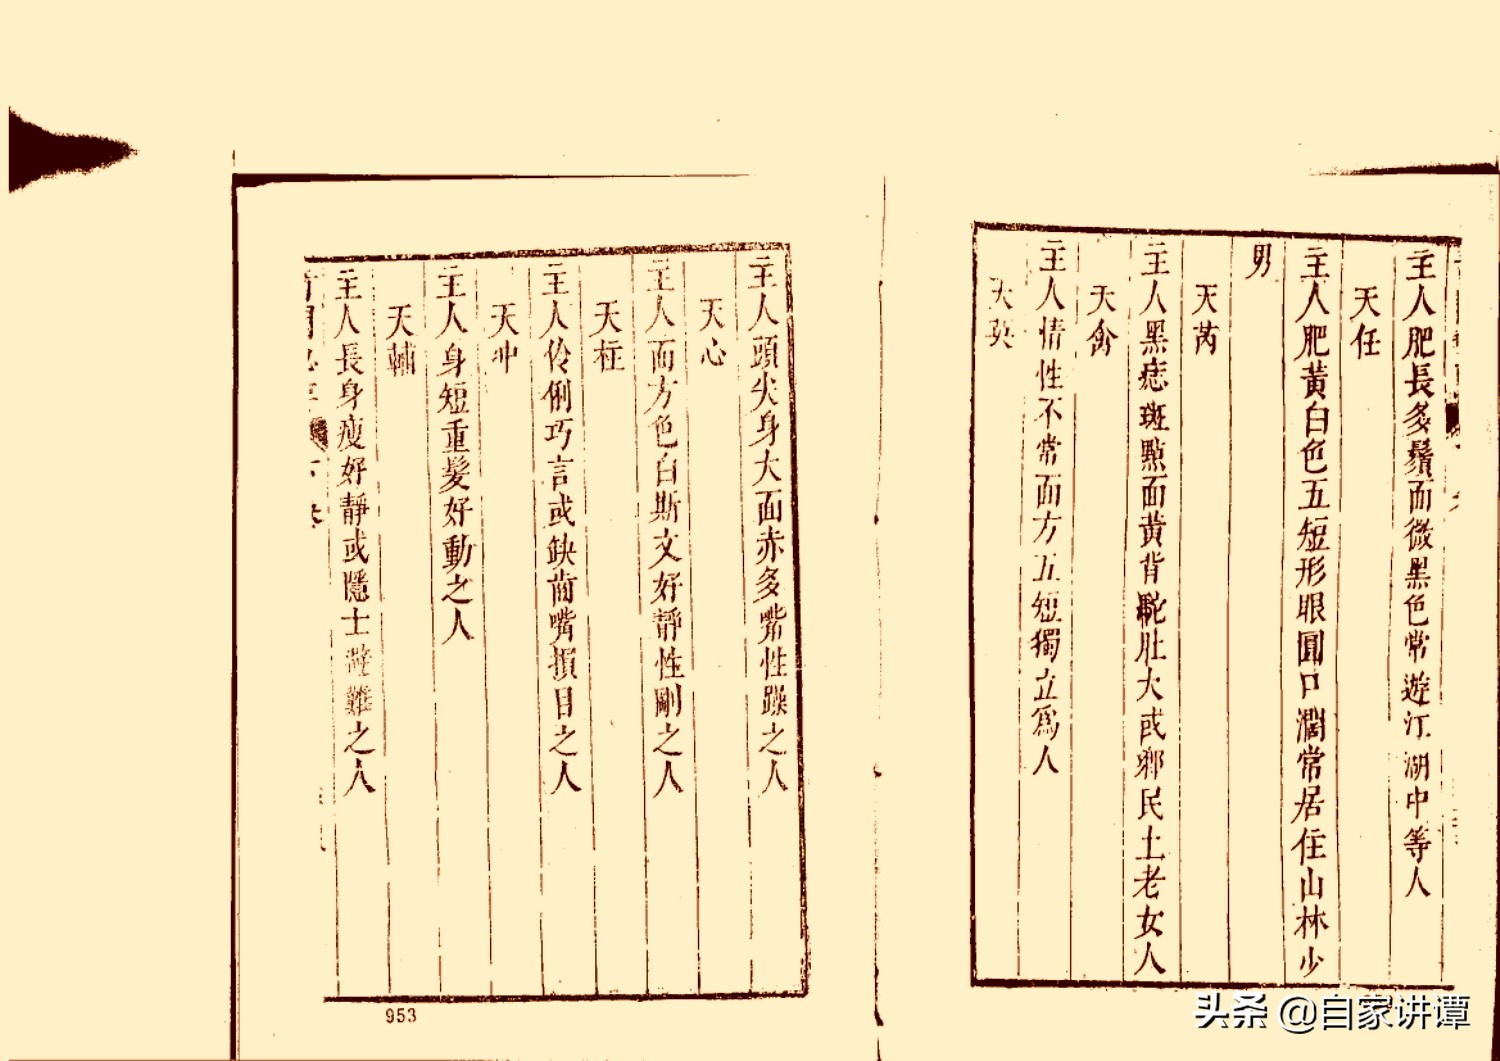 主人肥長多鬚面微黑色常遊江湖中等人
天任
主人肥黃白色五短形眼圓口濶常居住山林少
男
天芮
主人黑痣斑點面黃背駝肚大或鄉民土老女人
天禽
主人情性不常面方五短獨立爲人
天英
主人頭尖身大面赤多嘴性躁之人
天心
主人面方色白斯文好靜性剛之人
天柱
主人伶俐巧言或缺齒嘴損目之人
天冲
主人身短重髮好動之人
天輔
主人長身瘦好靜或隱士避難之人
953
头条 @自家讲谭